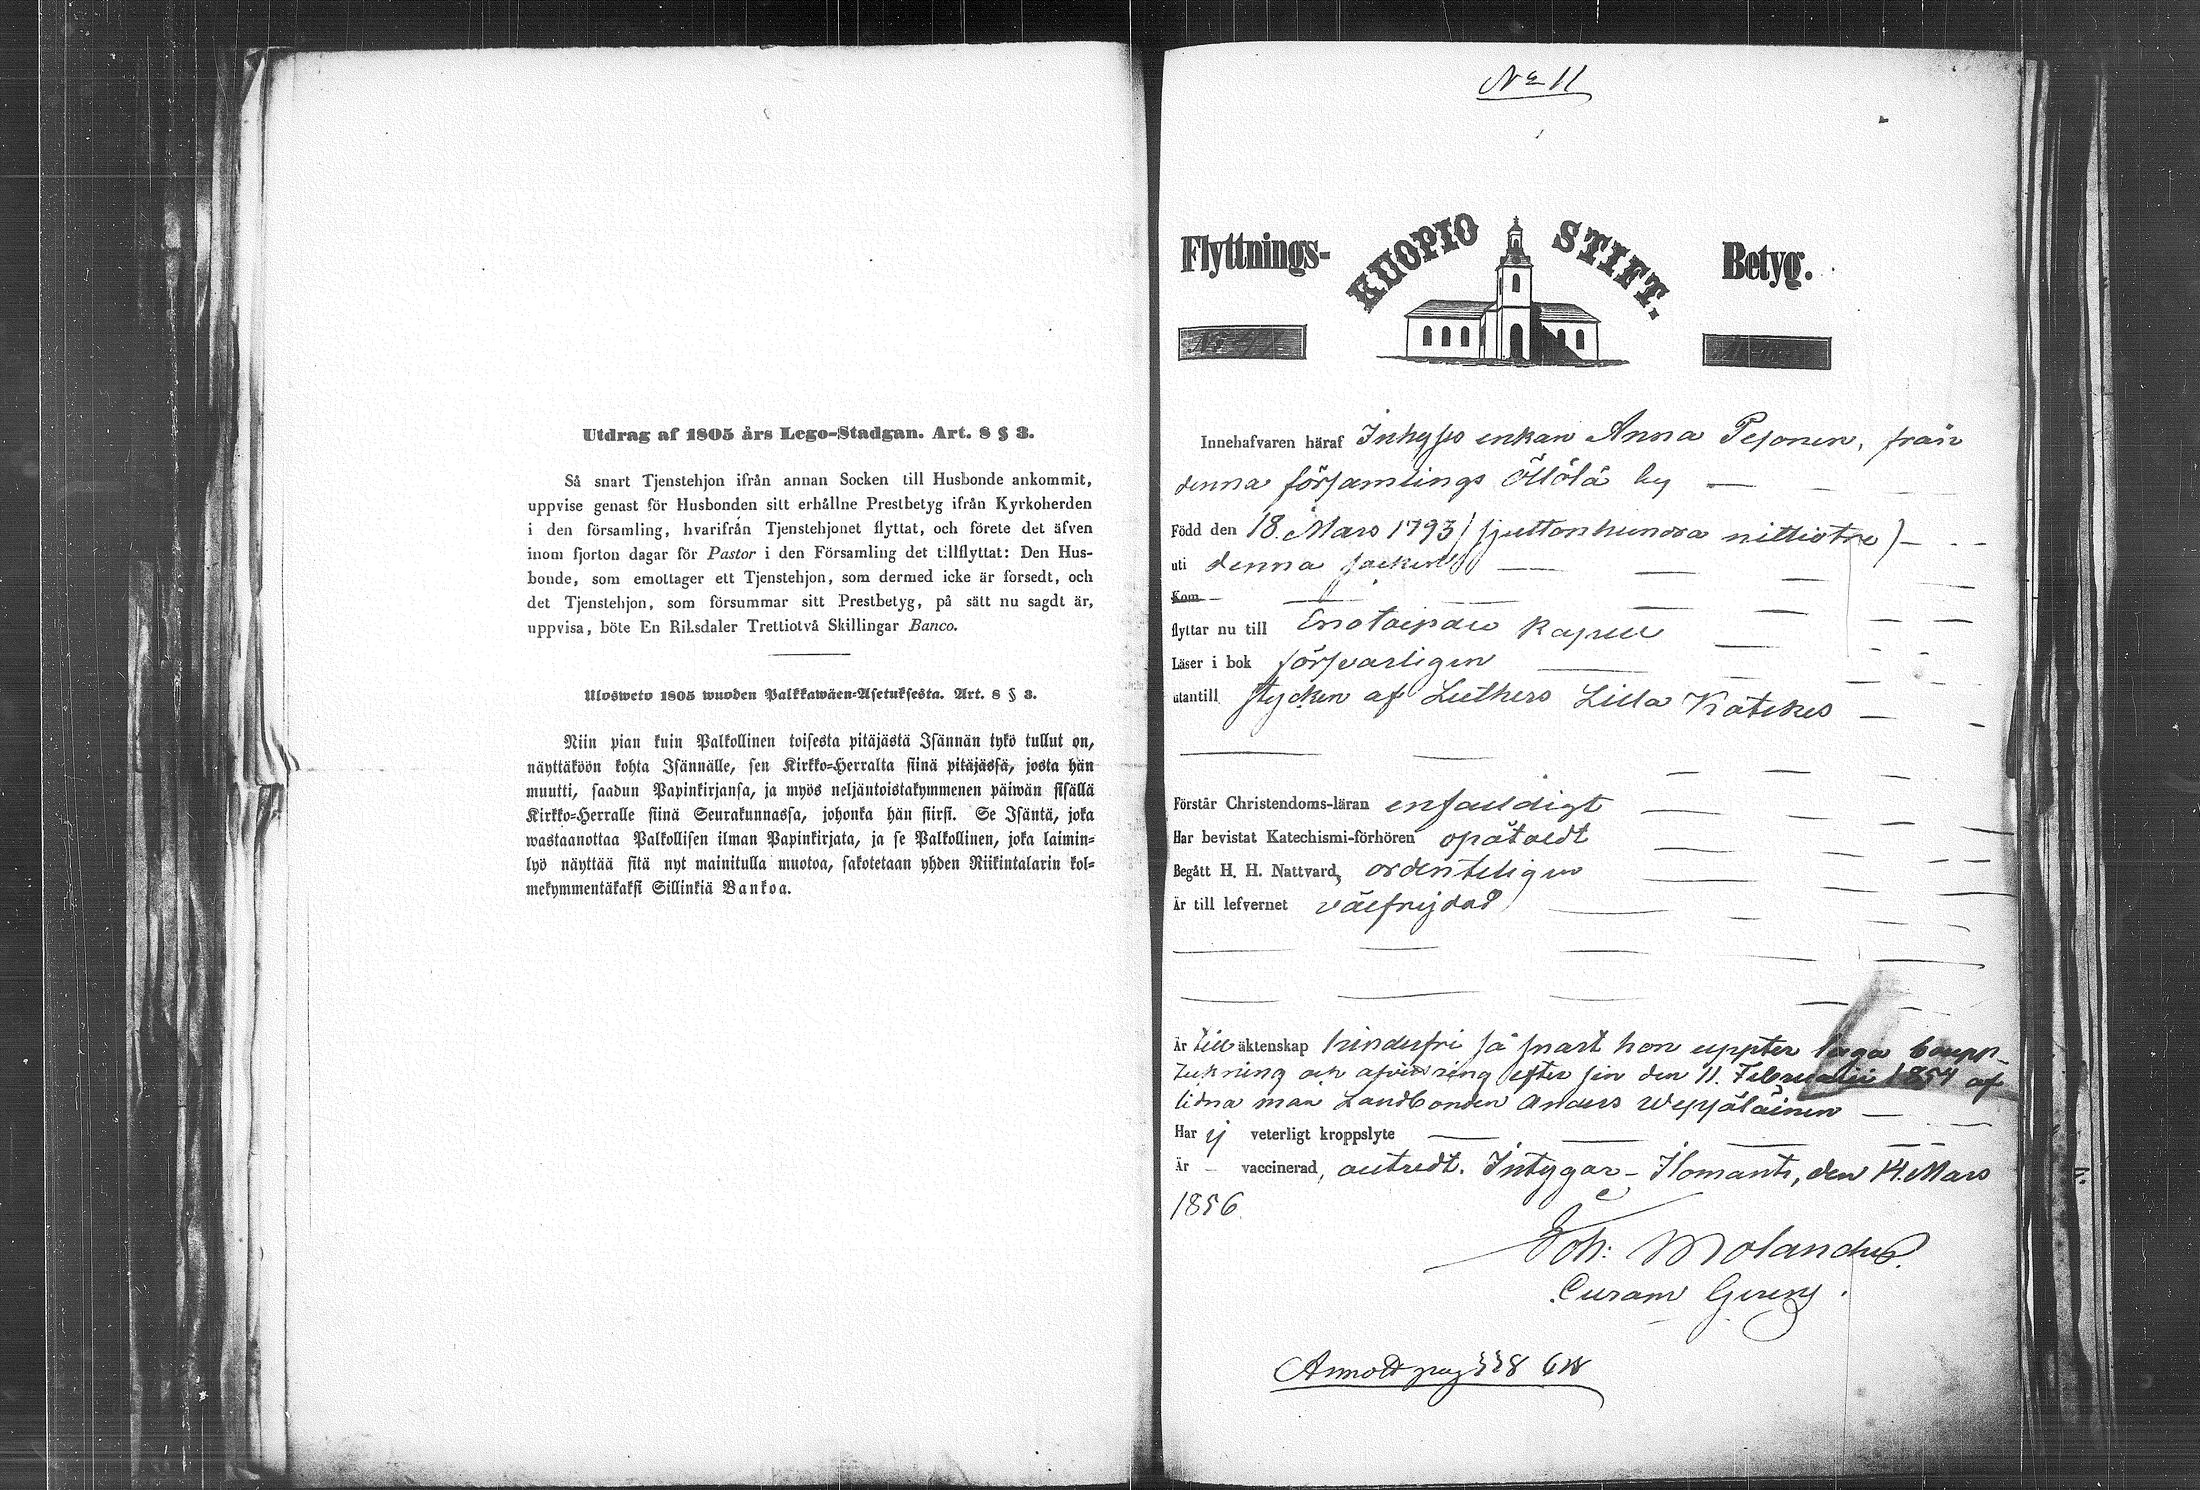 Utdrag af 1805 års Lego-Stadgan. Art. 8 § 3.
Så snart Tjenstehjon ifrån annan Socken till Husbonde ankommit,
uppvise genast för Husbonden sitt erhållne Prestbetyg ifrån Kyrkoherden
i den församling, hvarifrån Tjenstehjonet flyttat, och förete det äfven
inom fjorton dagar för Pastor i den Församling det tillflyttat: Den Hus-
bonde, som emottager ett Tjenstehjon, som dermed icke är forsedt, och
det Tjenstehjon, som försummar sitt Prestbetyg, på sätt nu sagdt är,
uppvisa, böte En Riksdaler Trettiotvå Skillingar Banco.
Ulosweto 1805 wuoden Palkkawäen-Asetuksesta. Art. 8 § 3.
Niin pian kuin Palkollinen toisesta pitäjästä Isännän tykö tullut on,
näyttäköön kohta Isännälle, sen Kirkko-Herralta siinä pitäjässä, josta hän
muutti, saadun Papinkirjansa, ja myös neljäntoistakymmenen päiwän sisällä
Kirkko-Herralle siinä Seurakunnassa, johonka hän siirsi. Se Isäntä, joka
wastaanottaa Palkollisen ilman Papinkirjata, ja se Palkollinen, joka laimin-
lyö näyttää sitä nyt mainitulla muotoa, sakotetaan yhden Riikintalarin kol-
mekymmentäkaksi Sillinkiä Bankoa.
No 11
Flyttnings- KUOPIO STIFT. Betyg.
Innehafvaren häraf Inhyses enkan Anna Pesonen, från
denna församlings Öllölä by
Född den 18. Mars 1793 (sjuttonhundra nittiotre)
uti denna socken
Kom
flyttar nu till Enotaipale Kapell
Läser i bok försvarligen
utantill stycken af Luthers Lilla Katekes
Förstår Christendoms-läran enfaldigt
Har bevistat Katechismi-förhören opåtaldt
Begått H. H. Nattvard, ordenteligen
Är till lefvernet välfrejdad
Är till äktenskap hinderfri så snart hon uppter laga boupp-
tekning och afvittring efter sin den 11. Februarii 1854 af
lidna man Landbonden Anders Wepsäläinen
Har ej veterligt kroppslyte
Är vaccinerad, autredt. Intygar Ilomants, den 14. Mars
1856
Joh: Molander.
Curam Gerens.
Annoterat pag 338